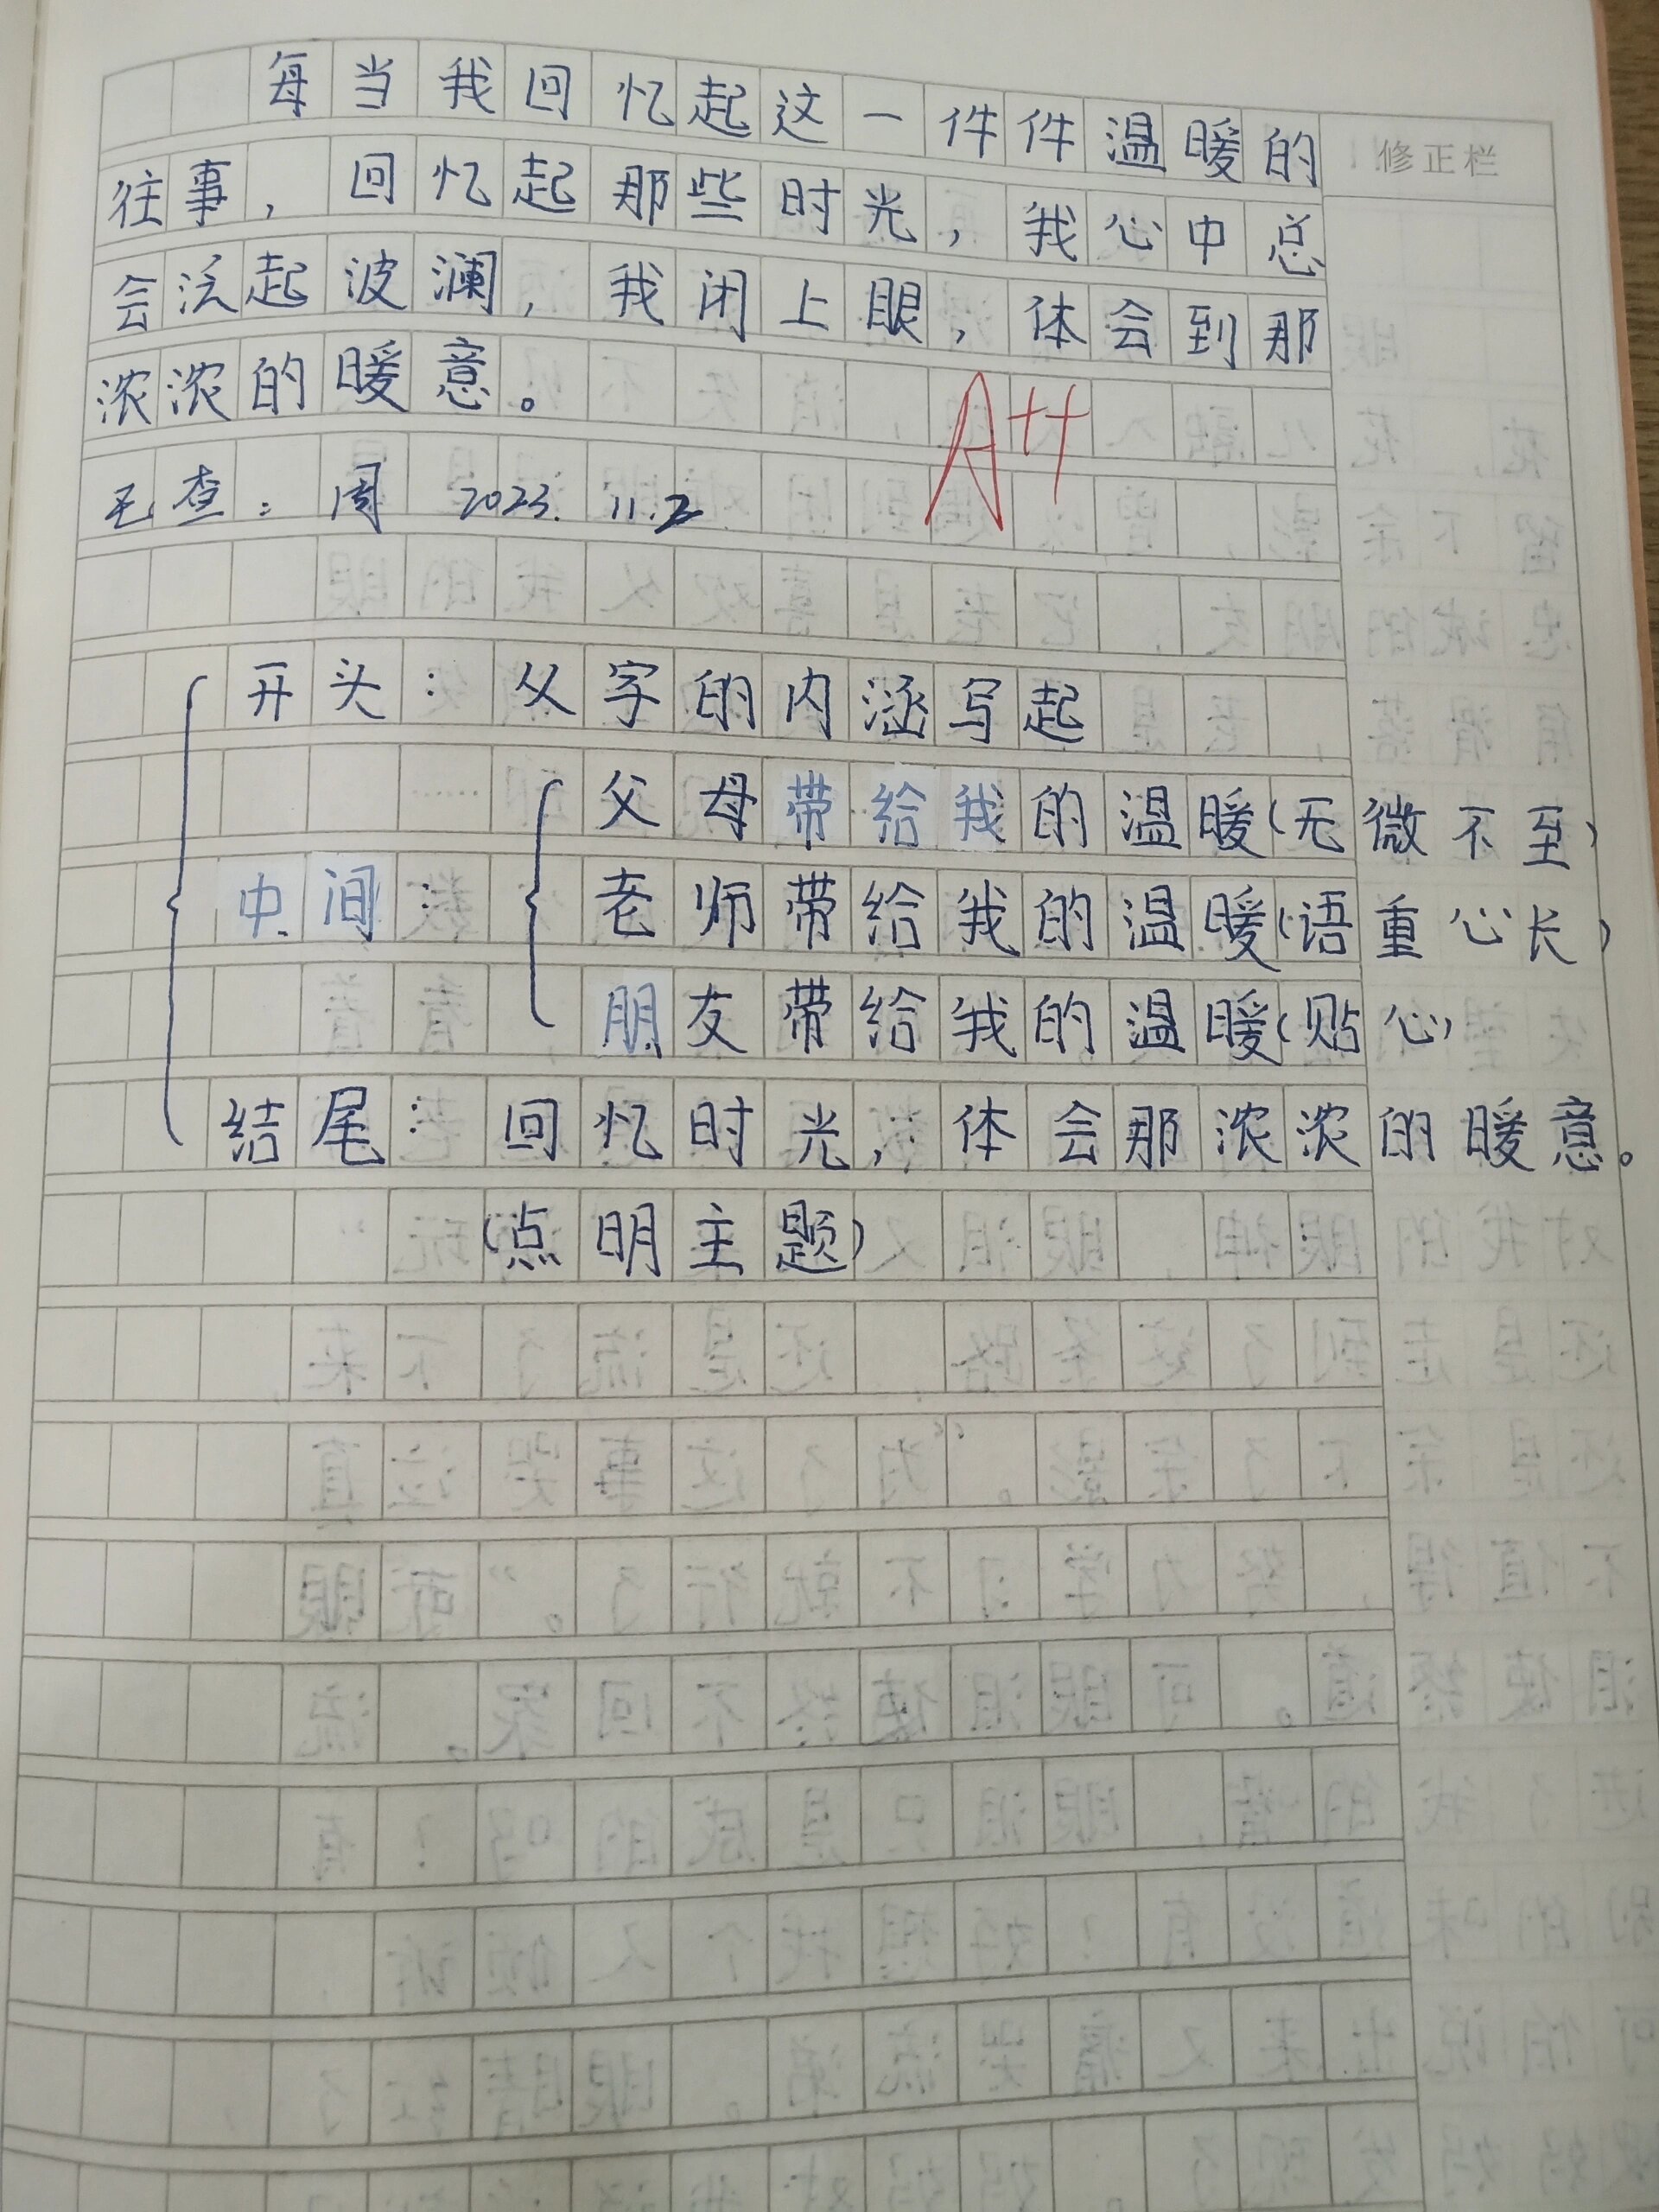 每当我回忆起这一件件温暖的
修正栏
往事，回忆起那些时光，我心中总
会泛起波澜，我闭上眼，体会到那
浓浓的暖意。
A++
已查：周 2023.11.2
开头：从字的内涵写起
父母带给我的温暖(无微不至)
中间：老师带给我的温暖(语重心长)
朋友带给我的温暖(贴心)
结尾：回忆时光，体会那浓浓的暖意。
(点明主题)